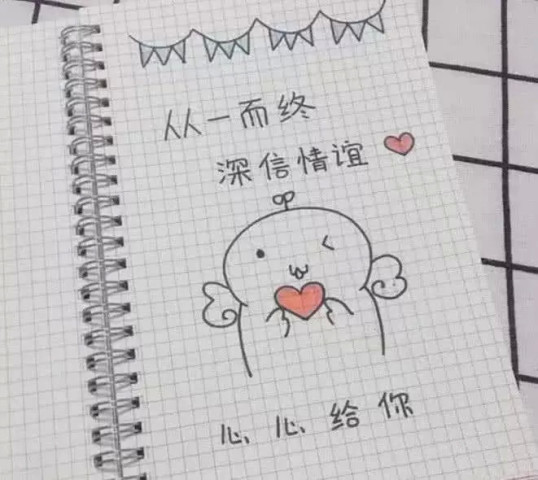 从一而终
深信情谊
心心给你